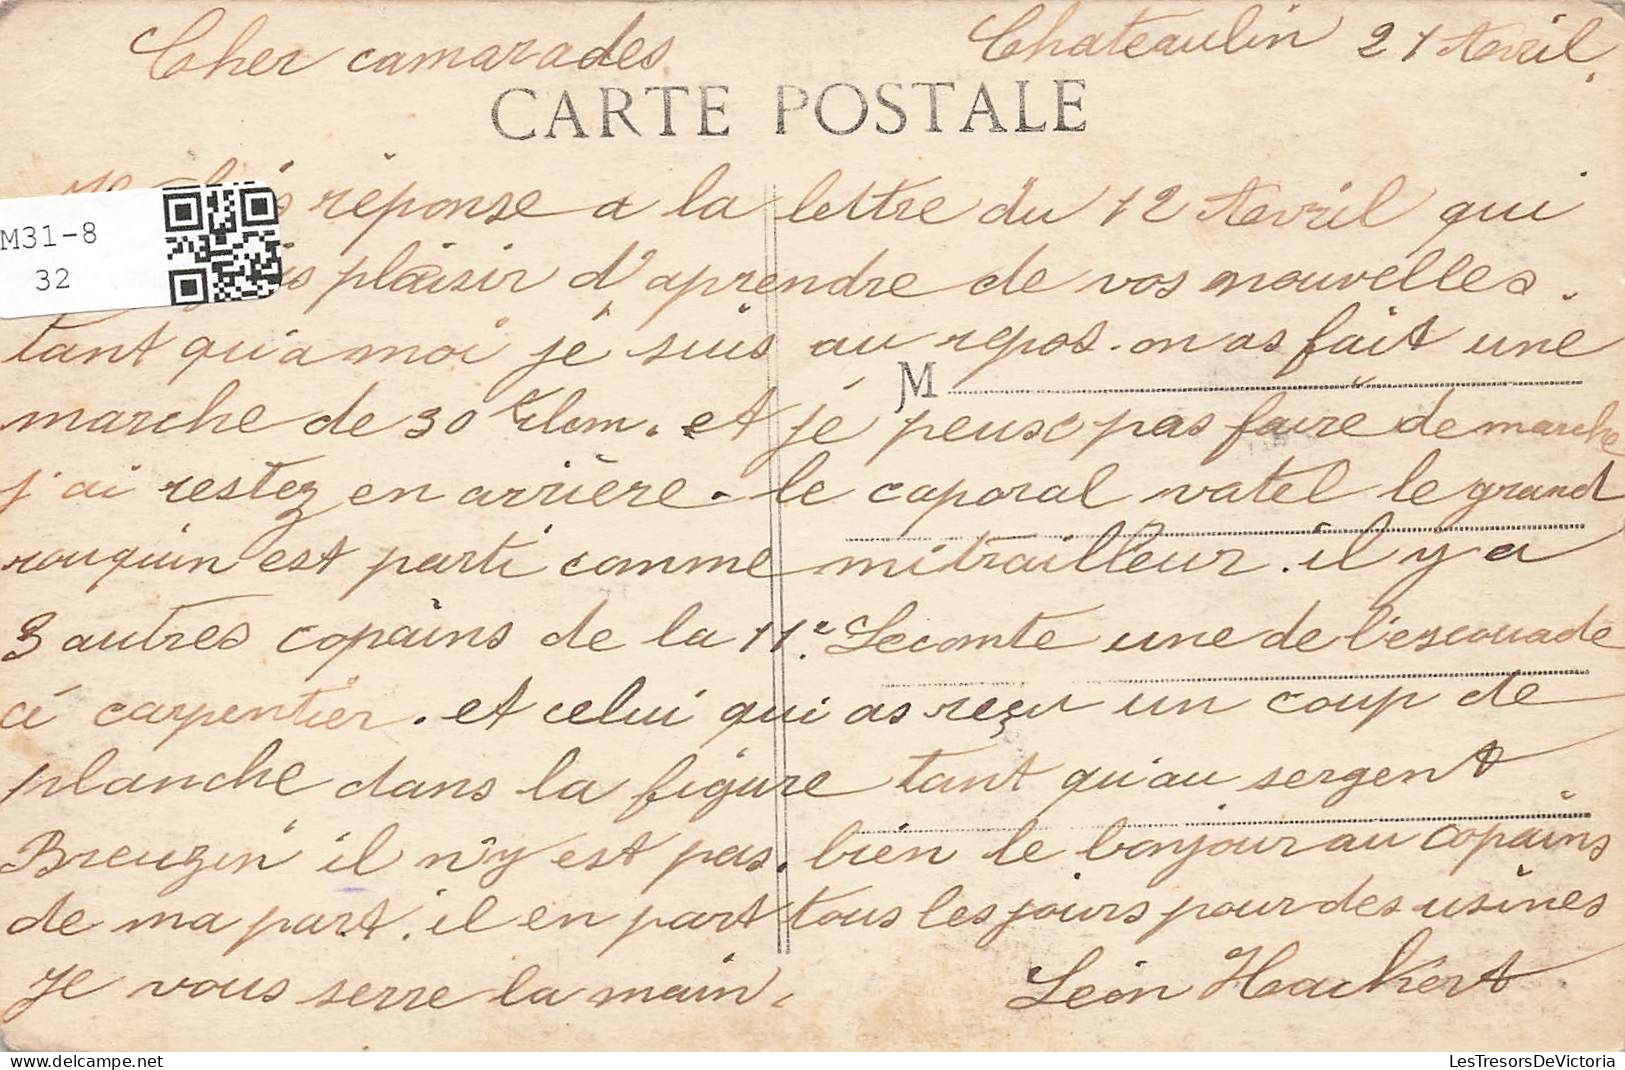 Cher camarades Chateaulin 21 Avril.
CARTE POSTALE
réponse a la lettre du 12 Avril qui
M31-8
32
plaisir d'aprendre de vos nouvelles.
tant qu'a moi je suis au repos. on as fait une
M
marche de 30 kilom. et je peux pas faire de marche
j'ai restez en arrière. le caporal vatel le grand
rouquin est parti comme mitrailleur. il y a
3 autres copains de la 11e. Lecomte une de l'escouade
ci carpentier. et celui qui as reçu un coup de
planche dans la figure tant qu'au sergent
Breuzin il n'y est pas. bien le bonjour au copains
de ma part. il en part tous les jours pour des usines
Je vous serre la main. Léon Hackert
LesTresorsDeVictoria